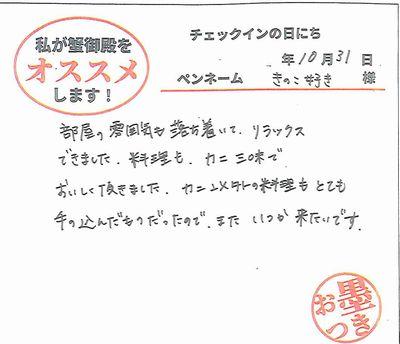 私が蟹御殿を
オススメ
します！
チェックインの日にち
年10月31日
ペンネーム きのこ好き 様
部屋の雰囲気も落ち着いて、リラックス
できました。料理も、カニ三昧で
おいしく頂きました。カニ以外の料理もとても
手の込んだものだったので、また いつか 来たいです。
お墨つき